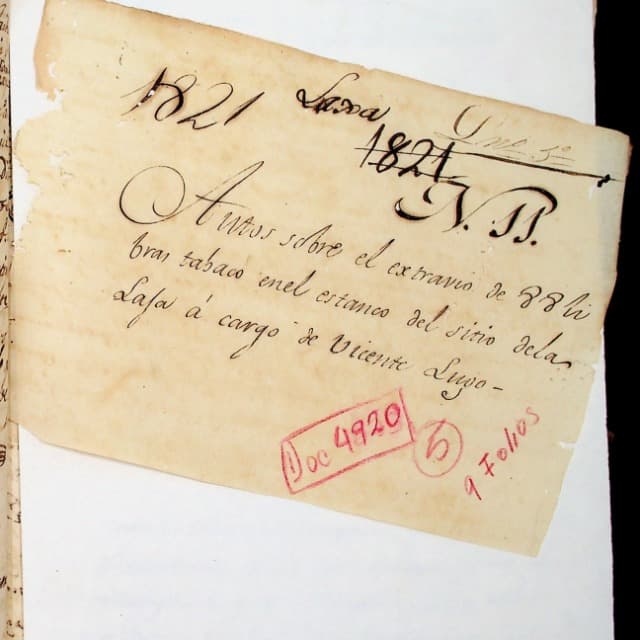 1821
1821
N. 11.
Autos sobre el extravio de 88 li
bras tabaco enel estanco del sitio dela
Lasa á cargo de Vicente Lugo-
Doc 4920
5
9 Folios